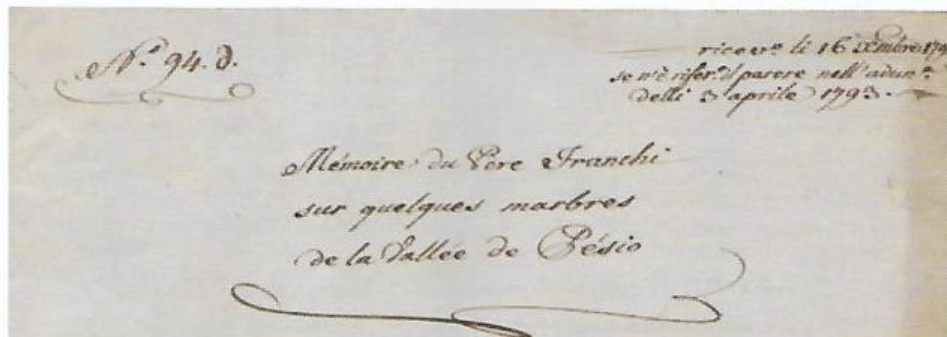 N.º 94. d.
ricev.º li 16 Xmbre 179
se n'è rifer.º il parere nell'adun.ª
delli 3 aprile 1793.
Mémoire du Père Franchi
sur quelques marbres
de la Vallée de Pésio